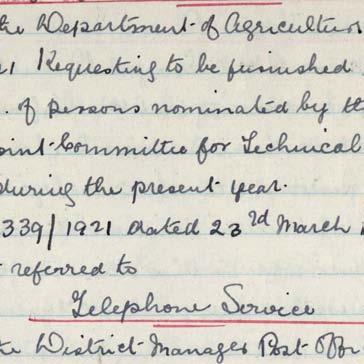 the Department of Agriculture
21 Requesting to be furnished
. of persons nominated by th
oint Committee for Technical
during the present year.
339/1921 dated 23rd March 1
referred to
Telephone Service
he District Manager Post Offi